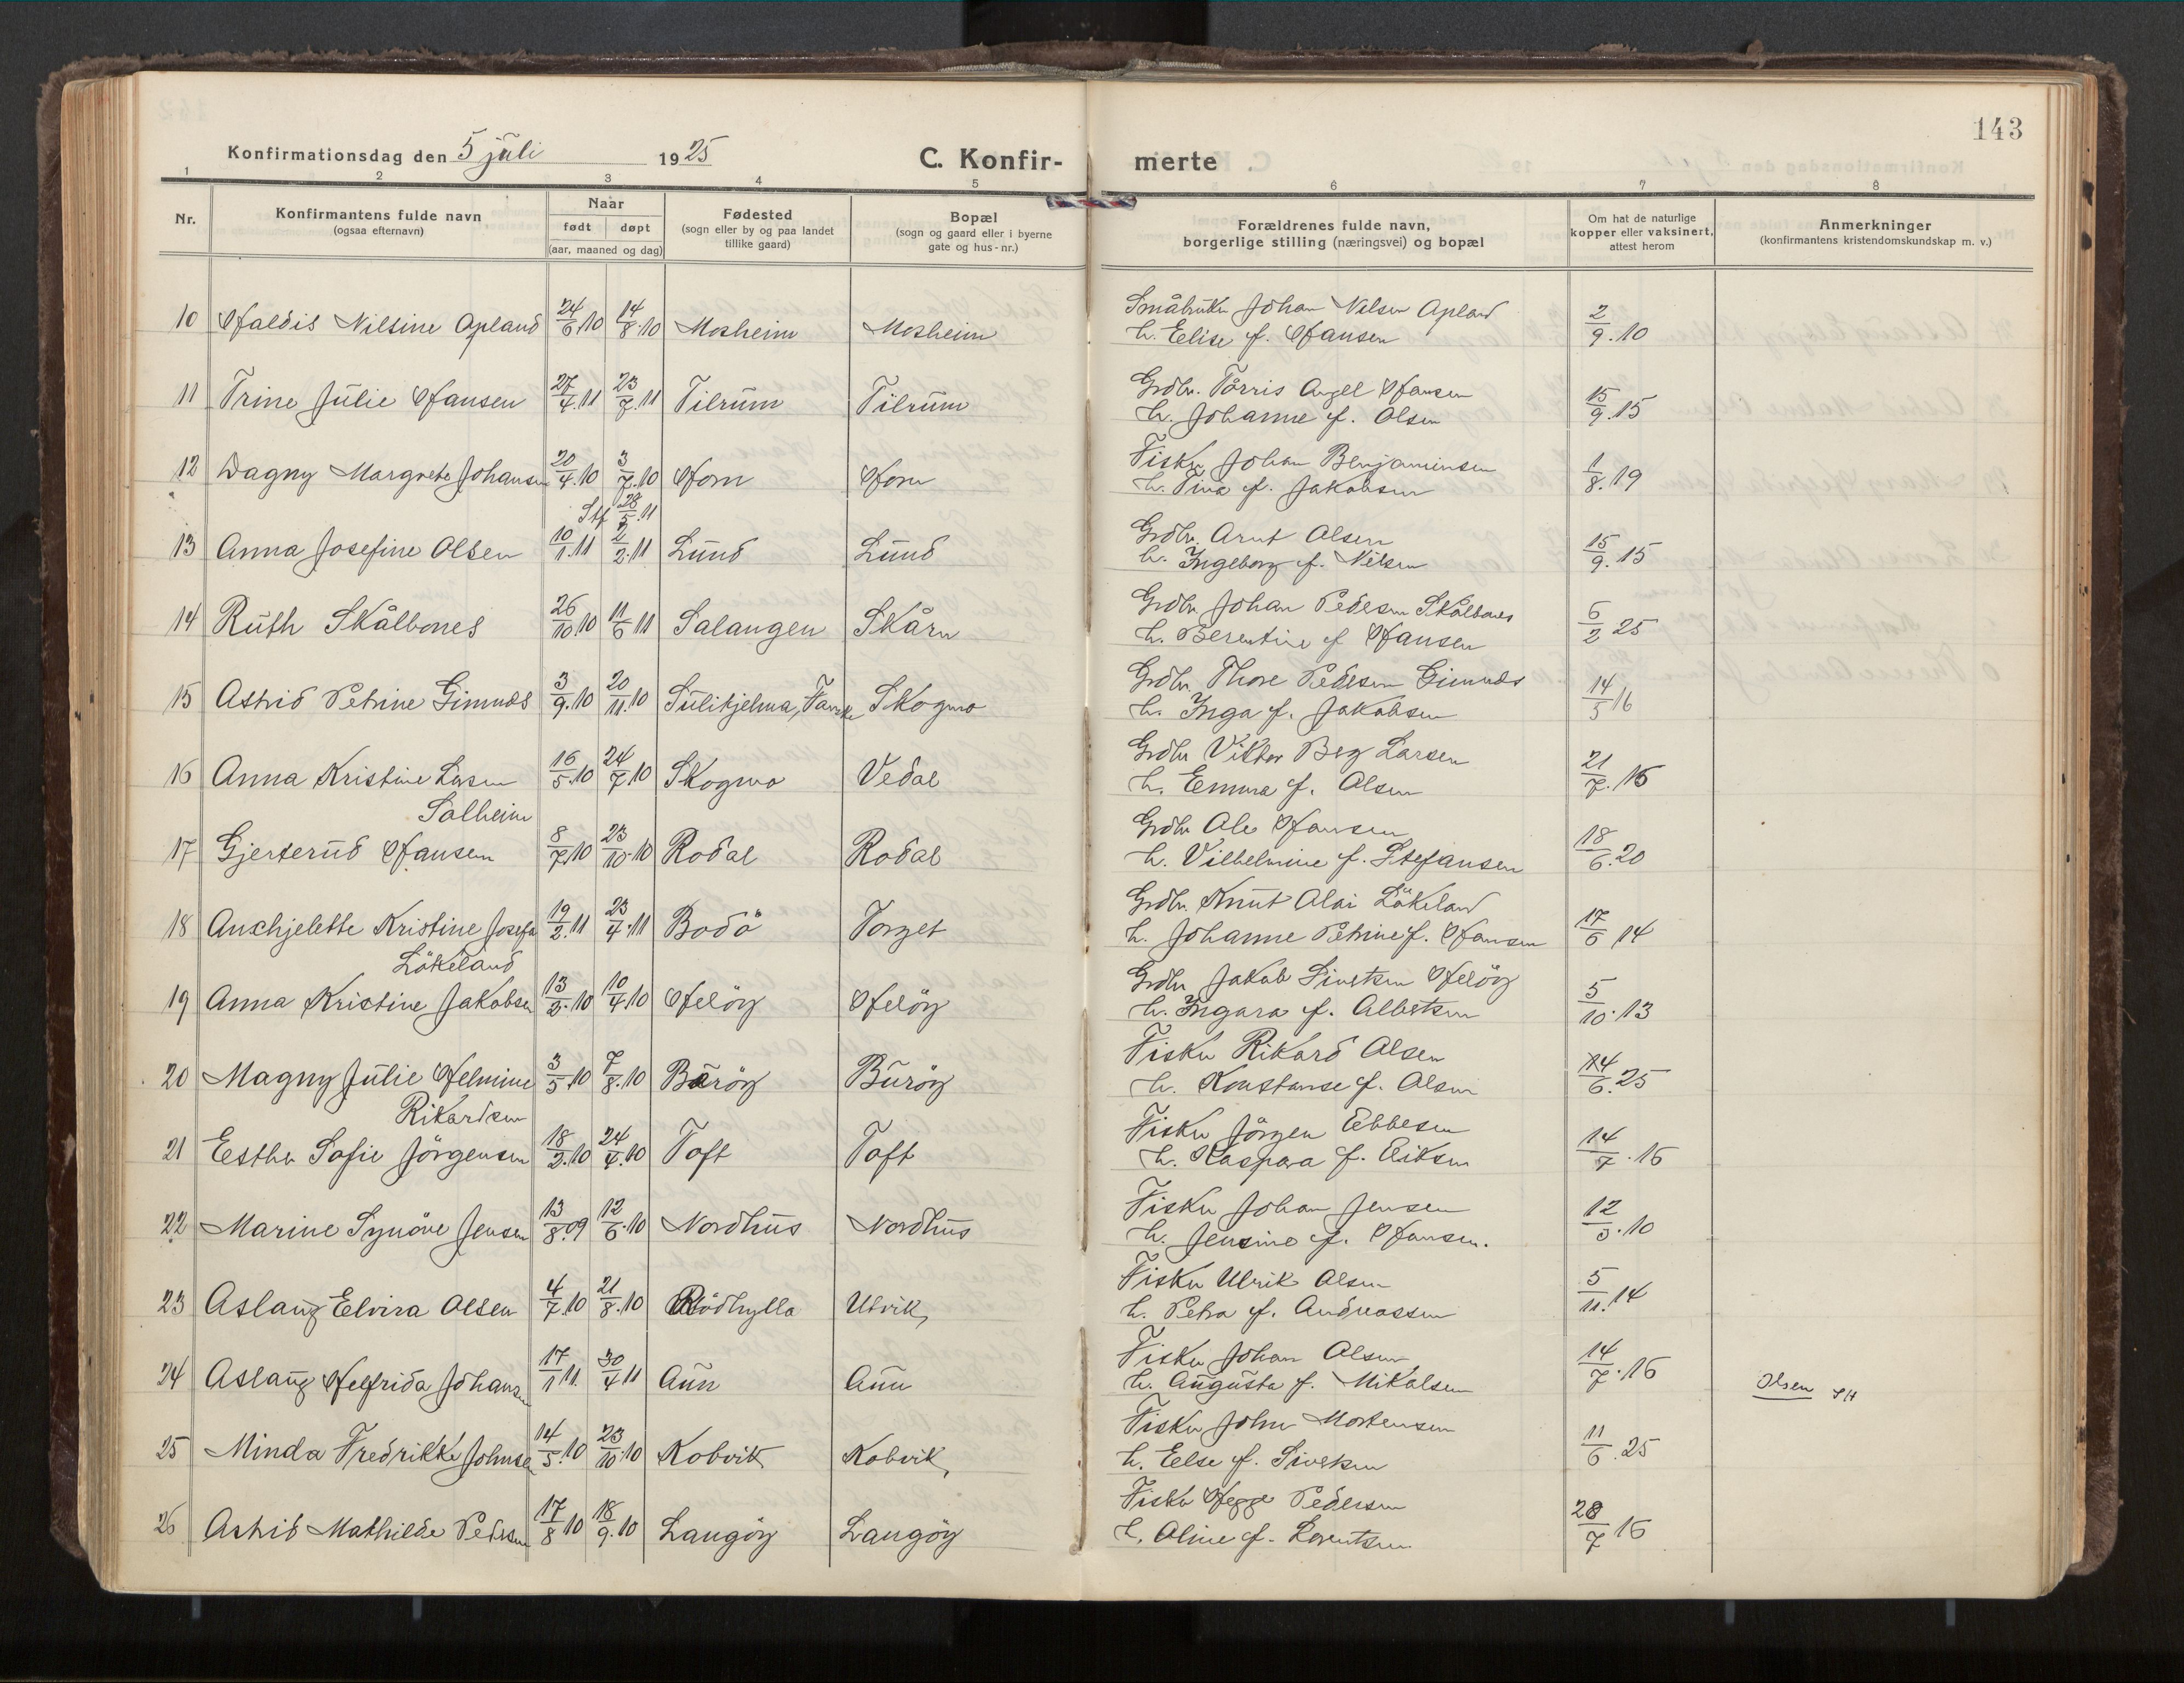 143
Konfirmationsdag den 5 juli 1925
C. Konfir-
merte
1 2 3 4 5 6 7 8
Nr.
Konfirmantens fulde navn
(ogsaa efternavn)
Naar
født døpt
(aar, maaned og dag)
Fødested
(sogn eller by og paa landet
tillike gaard)
Bopæl
(sogn og gaard eller i byerne
gate og hus-nr.)
Forældrenes fulde navn,
borgerlige stilling (næringsvei) og bopæl
Om hat de naturlige
kopper eller vaksinert,
attest herom
Anmerkninger
(konfirmantens kristendomskundskap m. v.)
Småbruker Johan Nilsen Apland
10 Haldis Nilsine Apland 24/6.10 14/8.10 Mosheim Mosheim h. Elise f. Hansen 2/9.10
Grdbr. Torris Angel Hansen
11 Trine Julie Hansen 27/4.11 23/7.11 Tilrum Tilrum h. Johanne f. Olsen 15/9.15
Fisker Johan Benjaminsen
12 Dagny Margrete Johansen 20/4.10 3/7.10 Horn Horn h. Tina f. Jakobsen 1/8.19
Stf 28/5.11
Grdbr. Arnt Olsen
13 Anna Josefine Olsen 10/1.11 2/2.11 Lund Lund h. Ingeborg f. Nilsen 15/9.15
Grdbr Johan Pedersen Skålbones
14 Ruth Skålbones 26/10.10 11/6 11 Salangen Skårn h. Berentine f Hansen 6/2 25
Grdbr. Thore Pedersen Gimnds
15 Astrid Petrine Gimnds 3/9.10 20/11.10 Sulitjelma, Fauske Skogmo h. Inga f. Jakobsen 14/5 16
Grdbr Viktor Berg Larsen
16 Anna Kristine Larsen 16/5.10 24/7.10 Skogmo Vedal h. Emma f. Olsen 21/7.16
Solheim
Grdbr Ole Hansen
17 Gjertrud Hansen 8/7.10 23/10.10 Rodal Rodal h. Vilhelmine f. Stefansen 18/6.20
Grdbr. Knut Olai Lökeland
18 Anchjelette Kristine Josefa 19/2.11 23/4.11 Bodö Torget h. Johanne Petrine f. Hansen 17/6 14
Lökeland
Grdbr Jakob Sivertsen Helöy
19 Anna Kristine Jakobsen 13/2.10 10/4.10 Helöy Helöy h. Ingara f. Albertsen 5/10.13
Fisker Rikard Olsen
20 Magny Julie Helmine 3/5.10 7/8.10 Buröy Buröy h. Konstanse f. Olsen 14/6.25
Rikardsen
Fisker Jörgen Ebbesen
21 Esther Sofie Jörgensen 18/2.10 24/4.10 Toft Toft h. Kaspara f. Eriksen 14/7.16
Fisker Johan Jensen
22 Marine Synöve Jensen 13/8.09 12/6.10 Nordhus Nordhus h. Jensine f. Hansen. 12/3.10
Fisker Ulrik Olsen
23 Aslaug Elvira Olsen 4/7.10 21/8.10 Rödhylla Ulvik, h. Petra f. Andreassen 5/11.14
Fisker Johan Olsen
24 Aslaug Helfrida Johansen 17/1 11. 30/4 11 Aun Aun h. Augusta f. Mikalsen 14/7.16 Olsen SH
Fisker John Mortensen
25 Minda Fredrikke Johnsen 14/5.10 23/10.10 Kobvik Kobvik, h. Else f. Sivertsen 11/6.25
Fisker Hegge Pedersen
26 Astrid Mathilde Pedersen 17/8 10 18/9.10 Langöy Langöy h. Oline f. Lorentsen 28/7 16